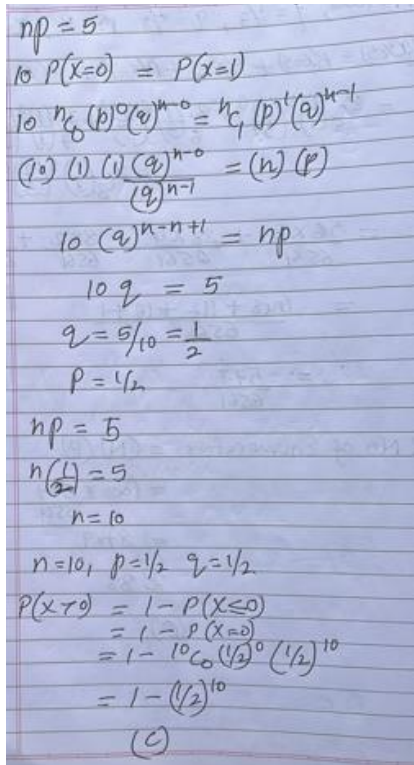 np = 5
10 P(x=0) = P(x=1)
10 ⁿC₀ (p)⁰(q)ⁿ⁻⁰ = ⁿC₁ (p)¹(q)ⁿ⁻¹
(10) (1) (1) (q)ⁿ⁻⁰ / (q)ⁿ⁻¹ = (n) (p)
10 (q)ⁿ⁻ⁿ⁺¹ = np
10 q = 5
q = 5/10 = 1/2
P = 1/2
np = 5
n(1/2) = 5
n = 10
n=10, p=1/2 q=1/2
P(x>0) = 1 - P(X≤0)
= 1 - P(X=0)
= 1 - ¹⁰C₀ (1/2)⁰ (1/2)¹⁰
= 1 - (1/2)¹⁰
(C)